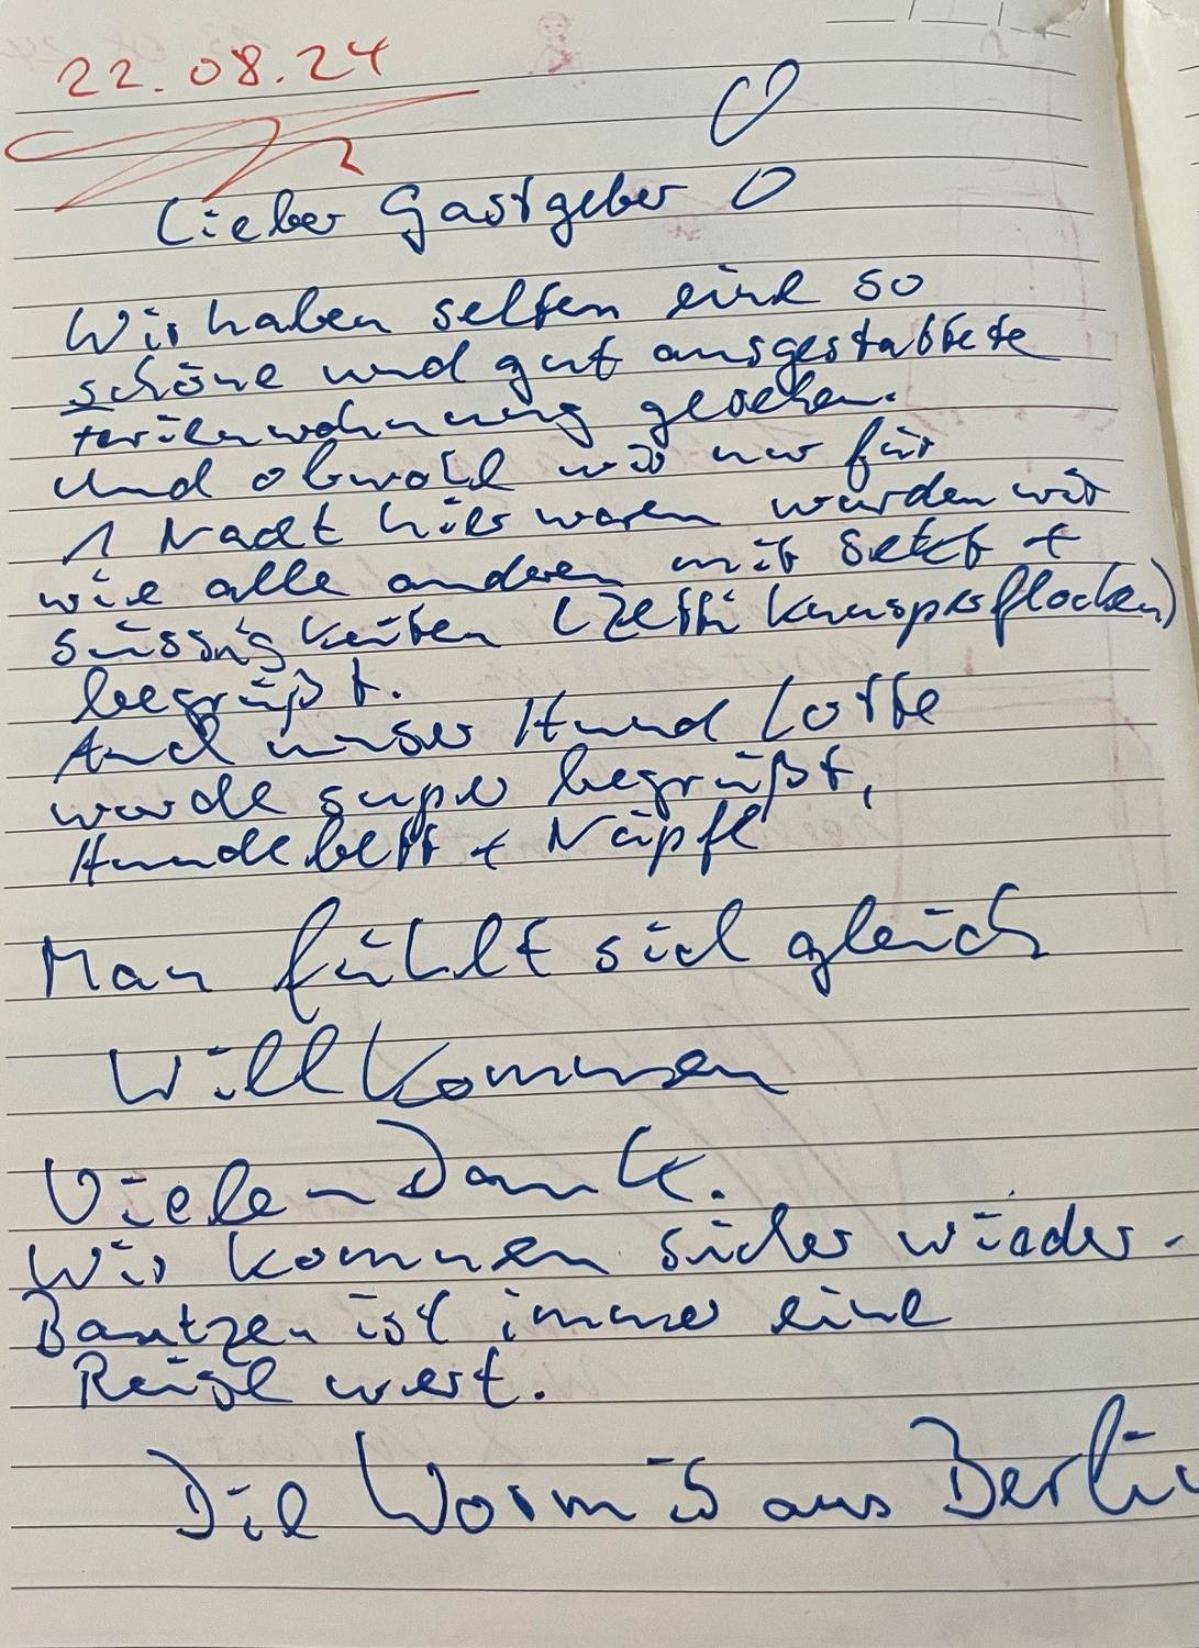 22.08.24
Lieber Gastgeber
Wir haben selten eine so
schöne und gut ausgestattete
Ferienwohnung gesehen.
Und obwohl wir nur für
1 Nacht hier waren wurden wir
wie alle anderen mit Sekt +
Süssigkeiten (Zetti Knusperflocken)
begrüßt.
Auch unser Hund Lotte
wurde super begrüßt,
Hundebett + Näpfe
Man fühlt sich gleich
Willkommen
Vielen Dank.
Wir kommen sicher wieder.
Bautzen ist immer eine
Reise wert.
Die Worm's aus Berlin